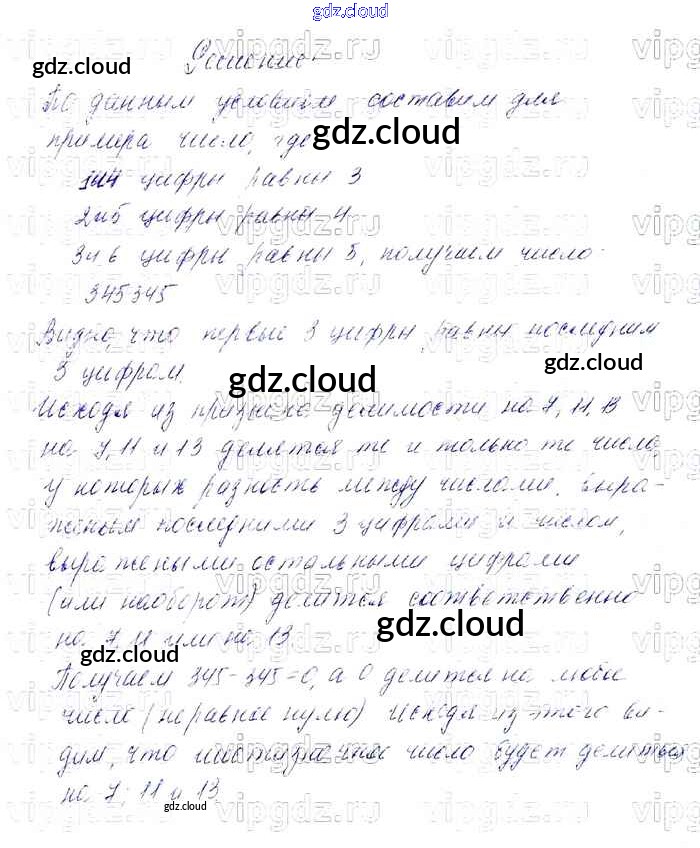 gdz.cloud
Решение
По данным условиям составим для
примера число, где
1и4 цифры равны 3
2и5 цифры равны 4
3и6 цифры равны 5, получаем число
345345
Видно, что первые 3 цифры равны последним
3 цифрам.
Исходя из признака делимости на 7, 11, 13
на 7, 11 и 13 делятся те и только те числа,
у которых разность между числами, выра-
женным последними 3 цифрами и числом,
выражеными остальными цифрами
(или наоборот) делится соответственно
на 7, 11 или на 13
Получаем 345-345=0, а 0 делится на любое
число (неравное нулю) Исходя из этого ви-
дим, что шестизначное число будет делиться
на 7; 11 и 13
gdz.cloud
gdz.cloud
gdz.cloud
gdz.cloud
gdz.cloud
gdz.cloud
gdz.cloud
vipgdz.ru